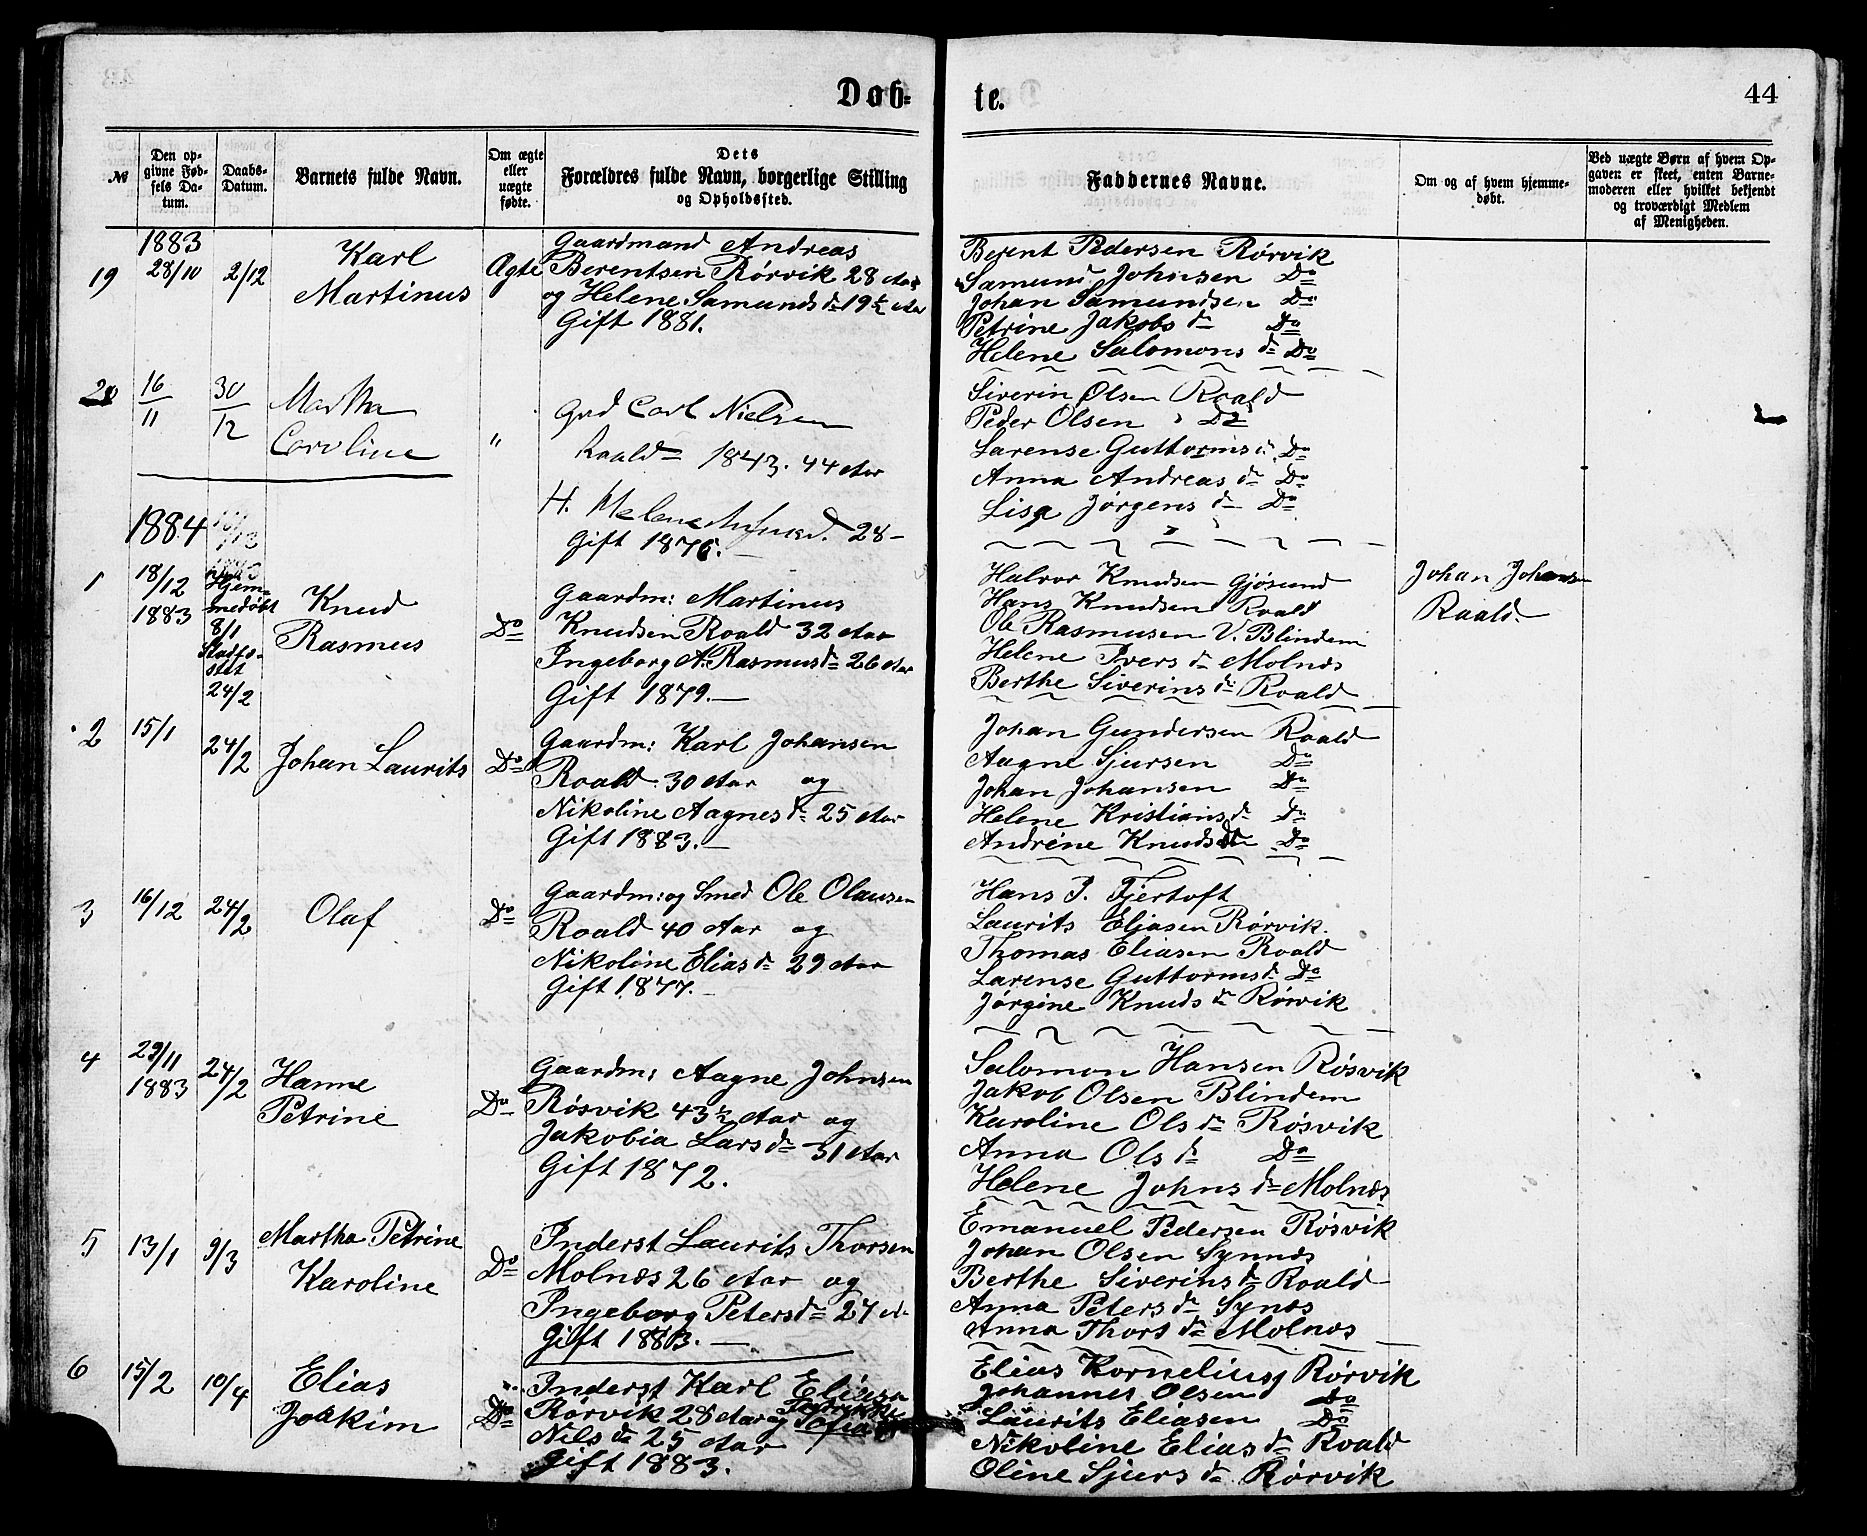 Døb-
te.
44
№
Den op-
givne Fød-
sels Da-
tum.
Daabs-
Datum.
Barnets fulde Navn.
Om ægte
eller
uægte
fødte.
Dets
Forældres fulde Navn, borgerlige Stilling
og Opholdssted.
Faddernes Navne.
Om og af hvem hjemme-
døbt.
Ved uægte Børn af hvem Op-
gaven er skeet, enten Barne-
moderen eller hvilket bekjendt
og troværdigt Medlem
af Menigheden.
1883
19
28/10
2/12
Karl
Martinus
Ægte
Gaardmand Andreas
Berentsen Rørvik 28 Aar
og Helene Samunds dr 19½ Aar
Gift 1881.
Berent Pedersen Rørvik
Samund Johnsen Do
Johan Samundsen Do
Petrine Jakobs dr Do
Helene Salomons dr Do
20
16/11
30/12
Martha
Caroline
"
Grd Carl Nielsen
Roald 1843. 44 Aar
H. Helene 28 –
Gift 1876. –
Siverin Olsen Roald
Peder Olsen Do
Larense Guttorms dr Do
Anna Andreas dr Do
Lisa Jørgens dr Do
1884
1
18/12
1883
Hjem-
medøbt
8/1
Stadfæ-
stet
24/2
Knud
Rasmus
Do
Gaardm: Martinus
Knudsen Roald 32 Aar
Ingeborg A. Rasmus dr 26 Aar
Gift 1879. –
Halvor Knudsen Gjøsund
Hans Knudsen Roald
Ole Rasmusen V. Blindem
Helene Ivers dr Molnæs
Berthe Siverins dr Roald
Johan Johansen
Roald.
2
15/1
24/2
Johan Laurits
Do
Gaardm: Karl Johansen
Roald 30 Aar og
Nikoline Aagnes dr 25 Aar
Gift 1883. –
Johan Gundersen Roald
Aagne Sjursen Do
Johan Johansen Do
Helene Kristians dr Do
Andrine Knuds dr Do
3
16/12
24/2
Olaf
Do
Gaardm: og Smed Ole Olausen
Roald 40 Aar og
Nikoline Elias dr 29 Aar
Gift 1877. –
Hans P. Fjertoft
Laurits Eliasen Rørvik.
Thomas Eliasen Roald
Larense Guttorms dr Do
Jørgine Knuds dr Rørvik
4
29/11
1883
24/2
Hanne
Petrine
Do
Gaardm: Aagne Johnsen
Røsvik 43½ Aar og
Jakobia Lars dr 31 Aar
Gift 1872.
Salomon Hansen Røsvik
Jakob Olsen Blindem
Karoline Ols dr Røsvik
Anna Ols dr Do
Helene Johns dr Molnæs
5
13/1
9/3
Martha Petrine
Karoline
Do
Inderst Laurits Thorsen
Molnæs 26 Aar og
Ingeborg Peters dr 27 A.
Gift 1883. –
Emanuel Pedersen Røsvik
Johan Olsen Synnæs
Berthe Siverins dr Roald
Anna Peters dr Synæs
Anna Thors dr Molnæs
6
15/2
10/4
Elias
Joakim
Do
Inderst Karl Eliasen
Rørvik 28 Aar og Sofia
Nils dr 25 Aar
Gift 1883.
Elias Kornelius Rørvik
Johannes Olsen Do
Laurits Eliasen Do
Nikoline Elias dr Roald
Oline Sjurs dr Rørvik